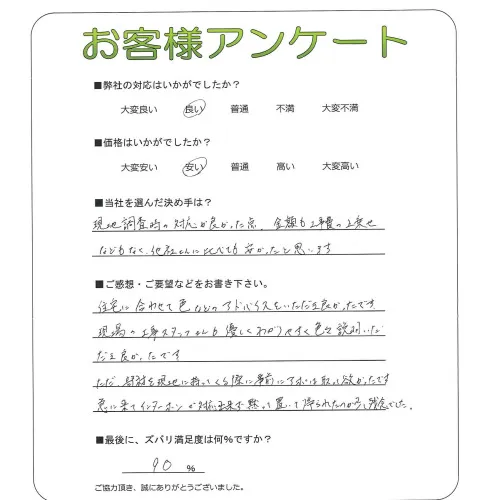 お客様アンケート
■弊社の対応はいかがでしたか？
大変良い 良い 普通 不満 大変不満
■価格はいかがでしたか？
大変安い 安い 普通 高い 大変高い
■当社を選んだ決め手は？
現地調査時の対応が良かった点、金額も工事費の上乗せ
などもなく、他社さんに比べても安かったと思います
■ご感想・ご要望などをお書き下さい。
住宅に合わせて色などのアドバイスをいただき良かったです。
現場の工事スタッフさんも優しくわかりやすく色々説明いた
だき良かったです
ただ、部材を現地に持ってくる際に事前にアポは取って欲かったです
急に来てインターホンが対応出来ず黙って置いて帰られたのが少し残念でした。
■最後に、ズバリ満足度は何％ですか？
90 ％
ご協力頂き、誠にありがとうございました。